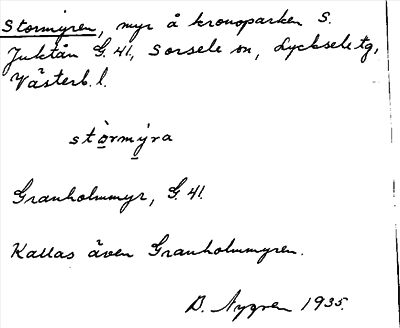 Stormyren, myr å kronoparken S.
Juktån G. 41, Sorsele sn, Lycksele tg,
Västerb. l.
stòrmýra
Granholmmyr, G. 41.
Kallas även Granholmmyren.
D. Nygren 1935.